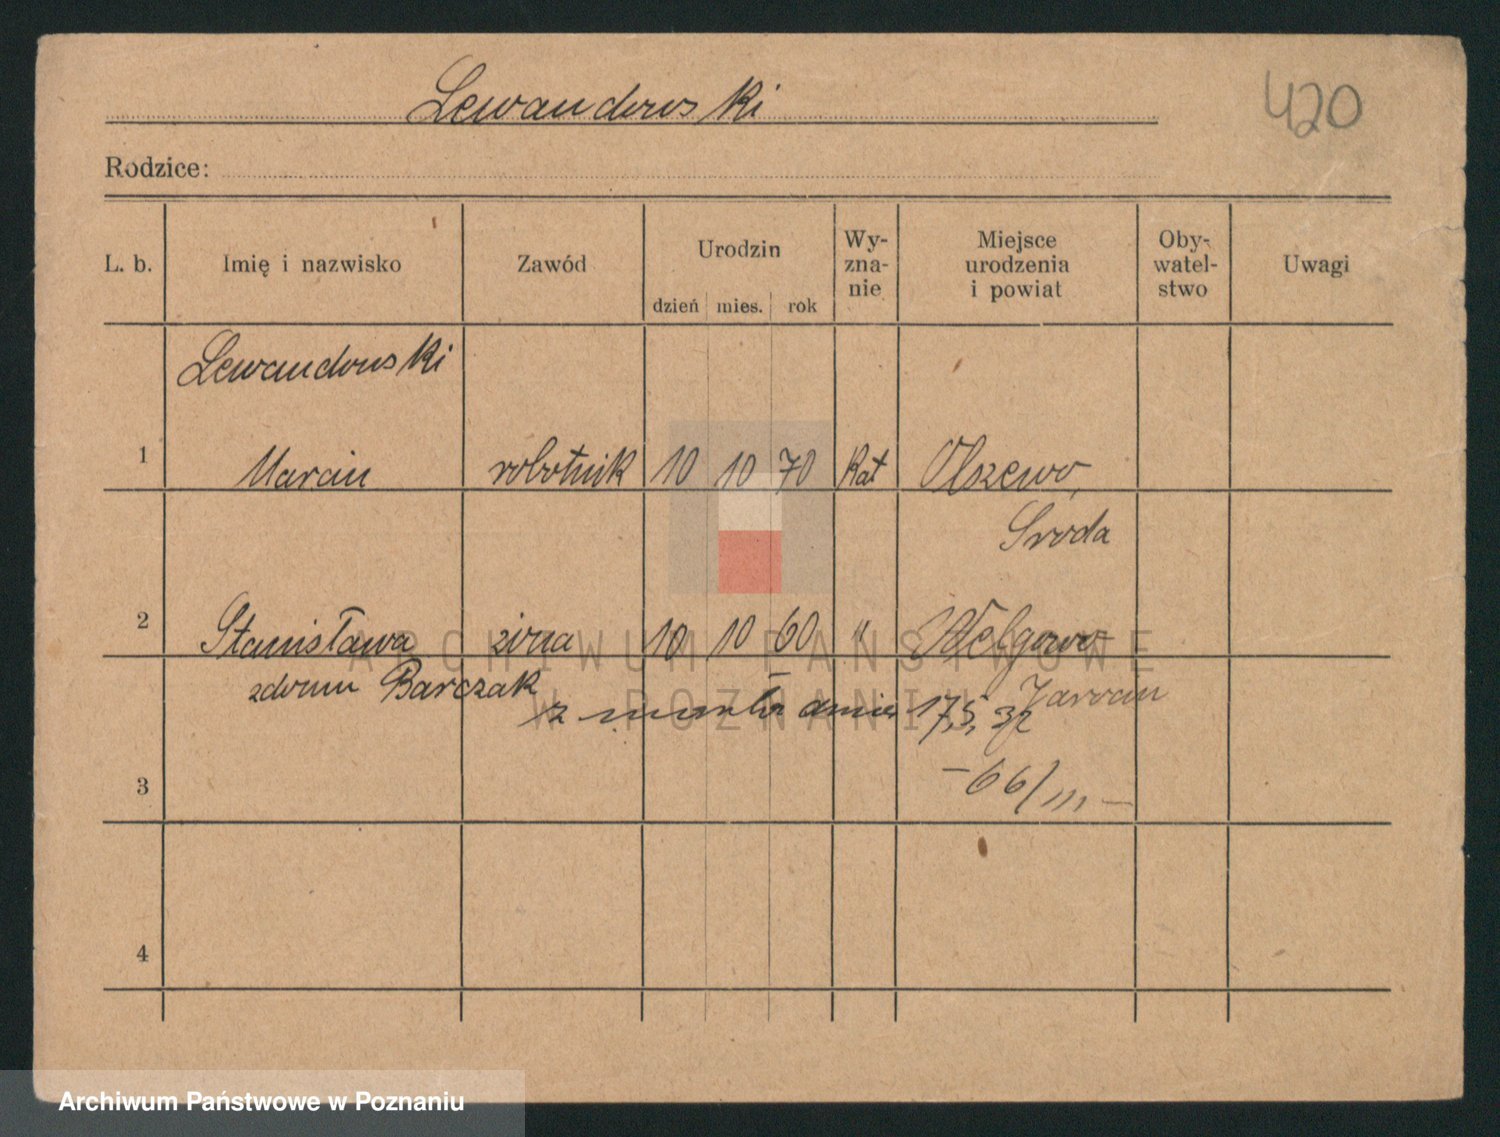 Lewandowski
420
Rodzice:
L. b. Imię i nazwisko Zawód Urodzin dzień mies. rok Wy-zna-nie Miejsce urodzenia i powiat Oby-watel-stwo Uwagi
Lewandowski
1 Marcin robotnik 10 10 70 Kat Olszewo,
Sroda
2 Stanisława żona 10 10 60 "
zdomu Barczak Jarocin
zmarła dnia 17,5, 32
3 -66/III-
4
ARCHIWUM PAŃSTWOWE
W POZNANIU
Archiwum Państwowe w Poznaniu